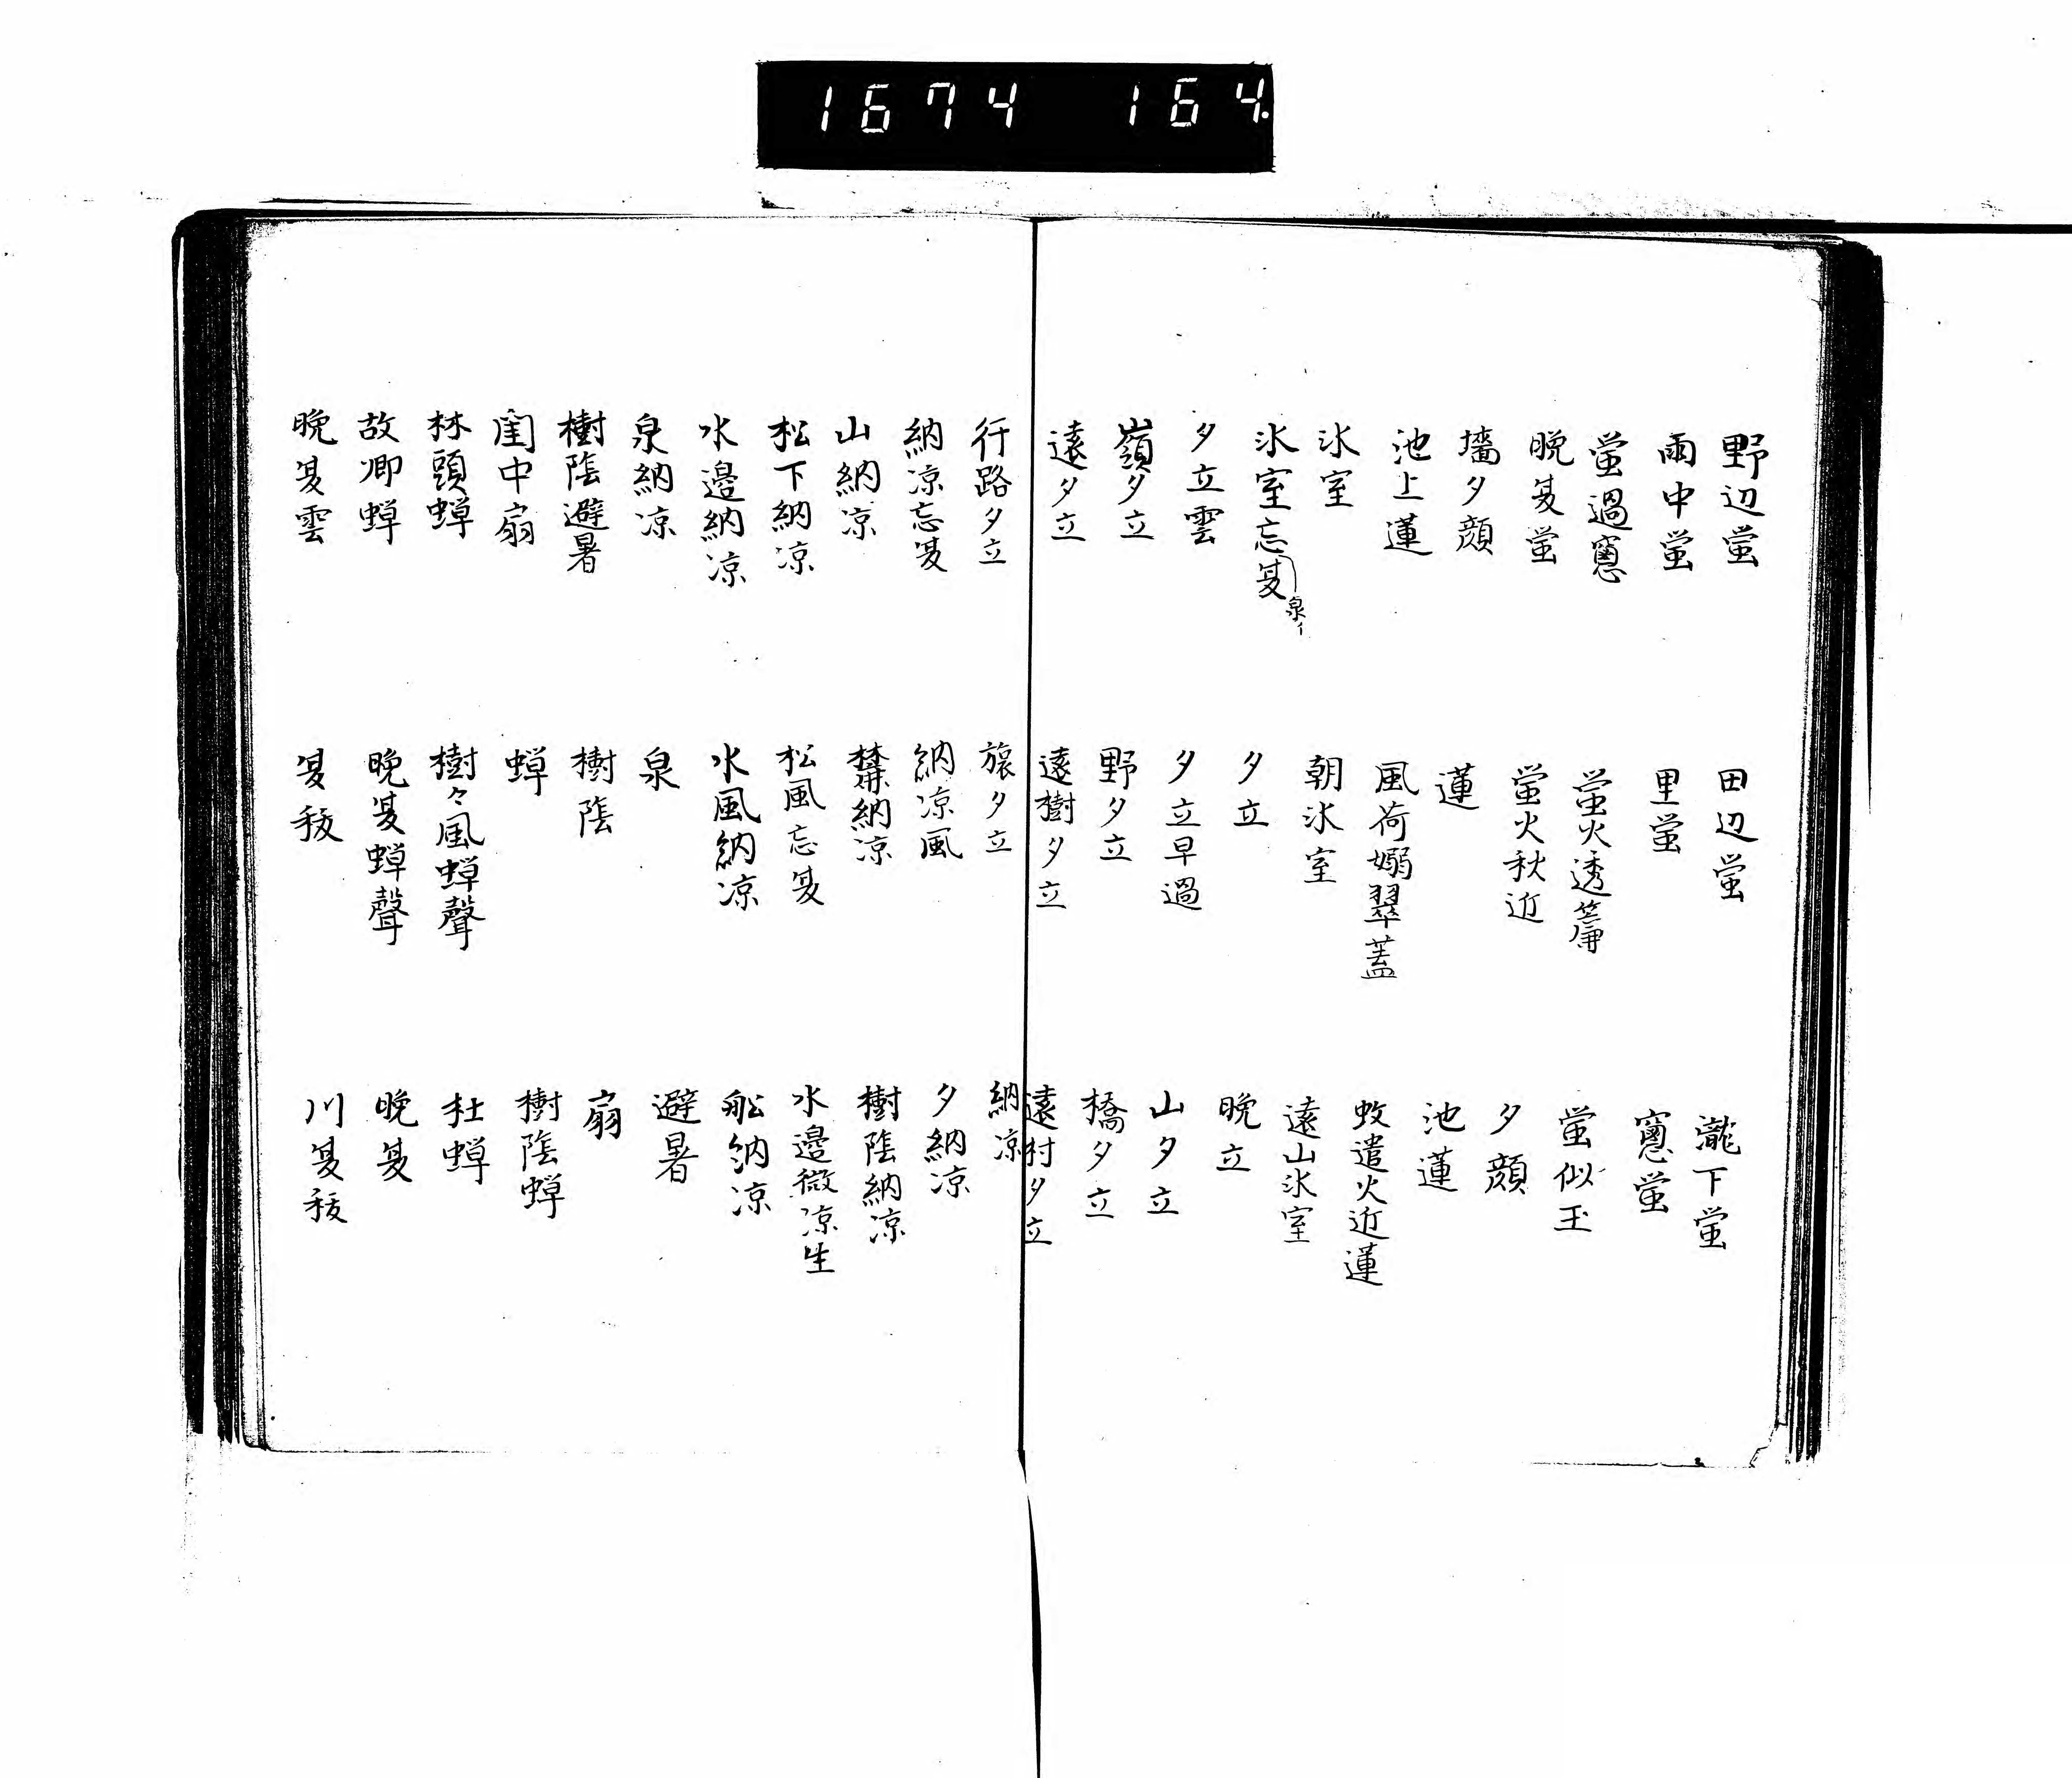 1674 164.
野辺蛍 田辺蛍 瀧下蛍
雨中蛍 里蛍 窓蛍
蛍過窓 蛍火透簾 蛍似玉
晩夏蛍 蛍火秋近 夕顔
墻夕顔 蓮 池蓮
池上蓮 風荷嫋翠蓋 蚊遣火近蓮
氷室 朝氷室 遠山氷室
氷室忘夏 泉イ 夕立 晩立
夕立雲 夕立早過 山夕立
嶺夕立 野夕立 橋夕立
遠夕立 遠樹夕立 遠村夕立
行路夕立 旅夕立 納凉
納凉忘夏 納凉風 夕納凉
山納凉 納凉 樹陰納凉
松下納凉 松風忘夏 水邊微凉生
水邊納凉 水風納凉 舩納凉
泉納凉 泉 避暑
樹陰避暑 樹陰 扇
閨中扇 蝉 樹陰蝉
林頭蝉 樹々風蝉聲 杜蝉
故郷蝉 晩夏蝉聲 晩夏
晩夏雲 夏祓 川夏祓